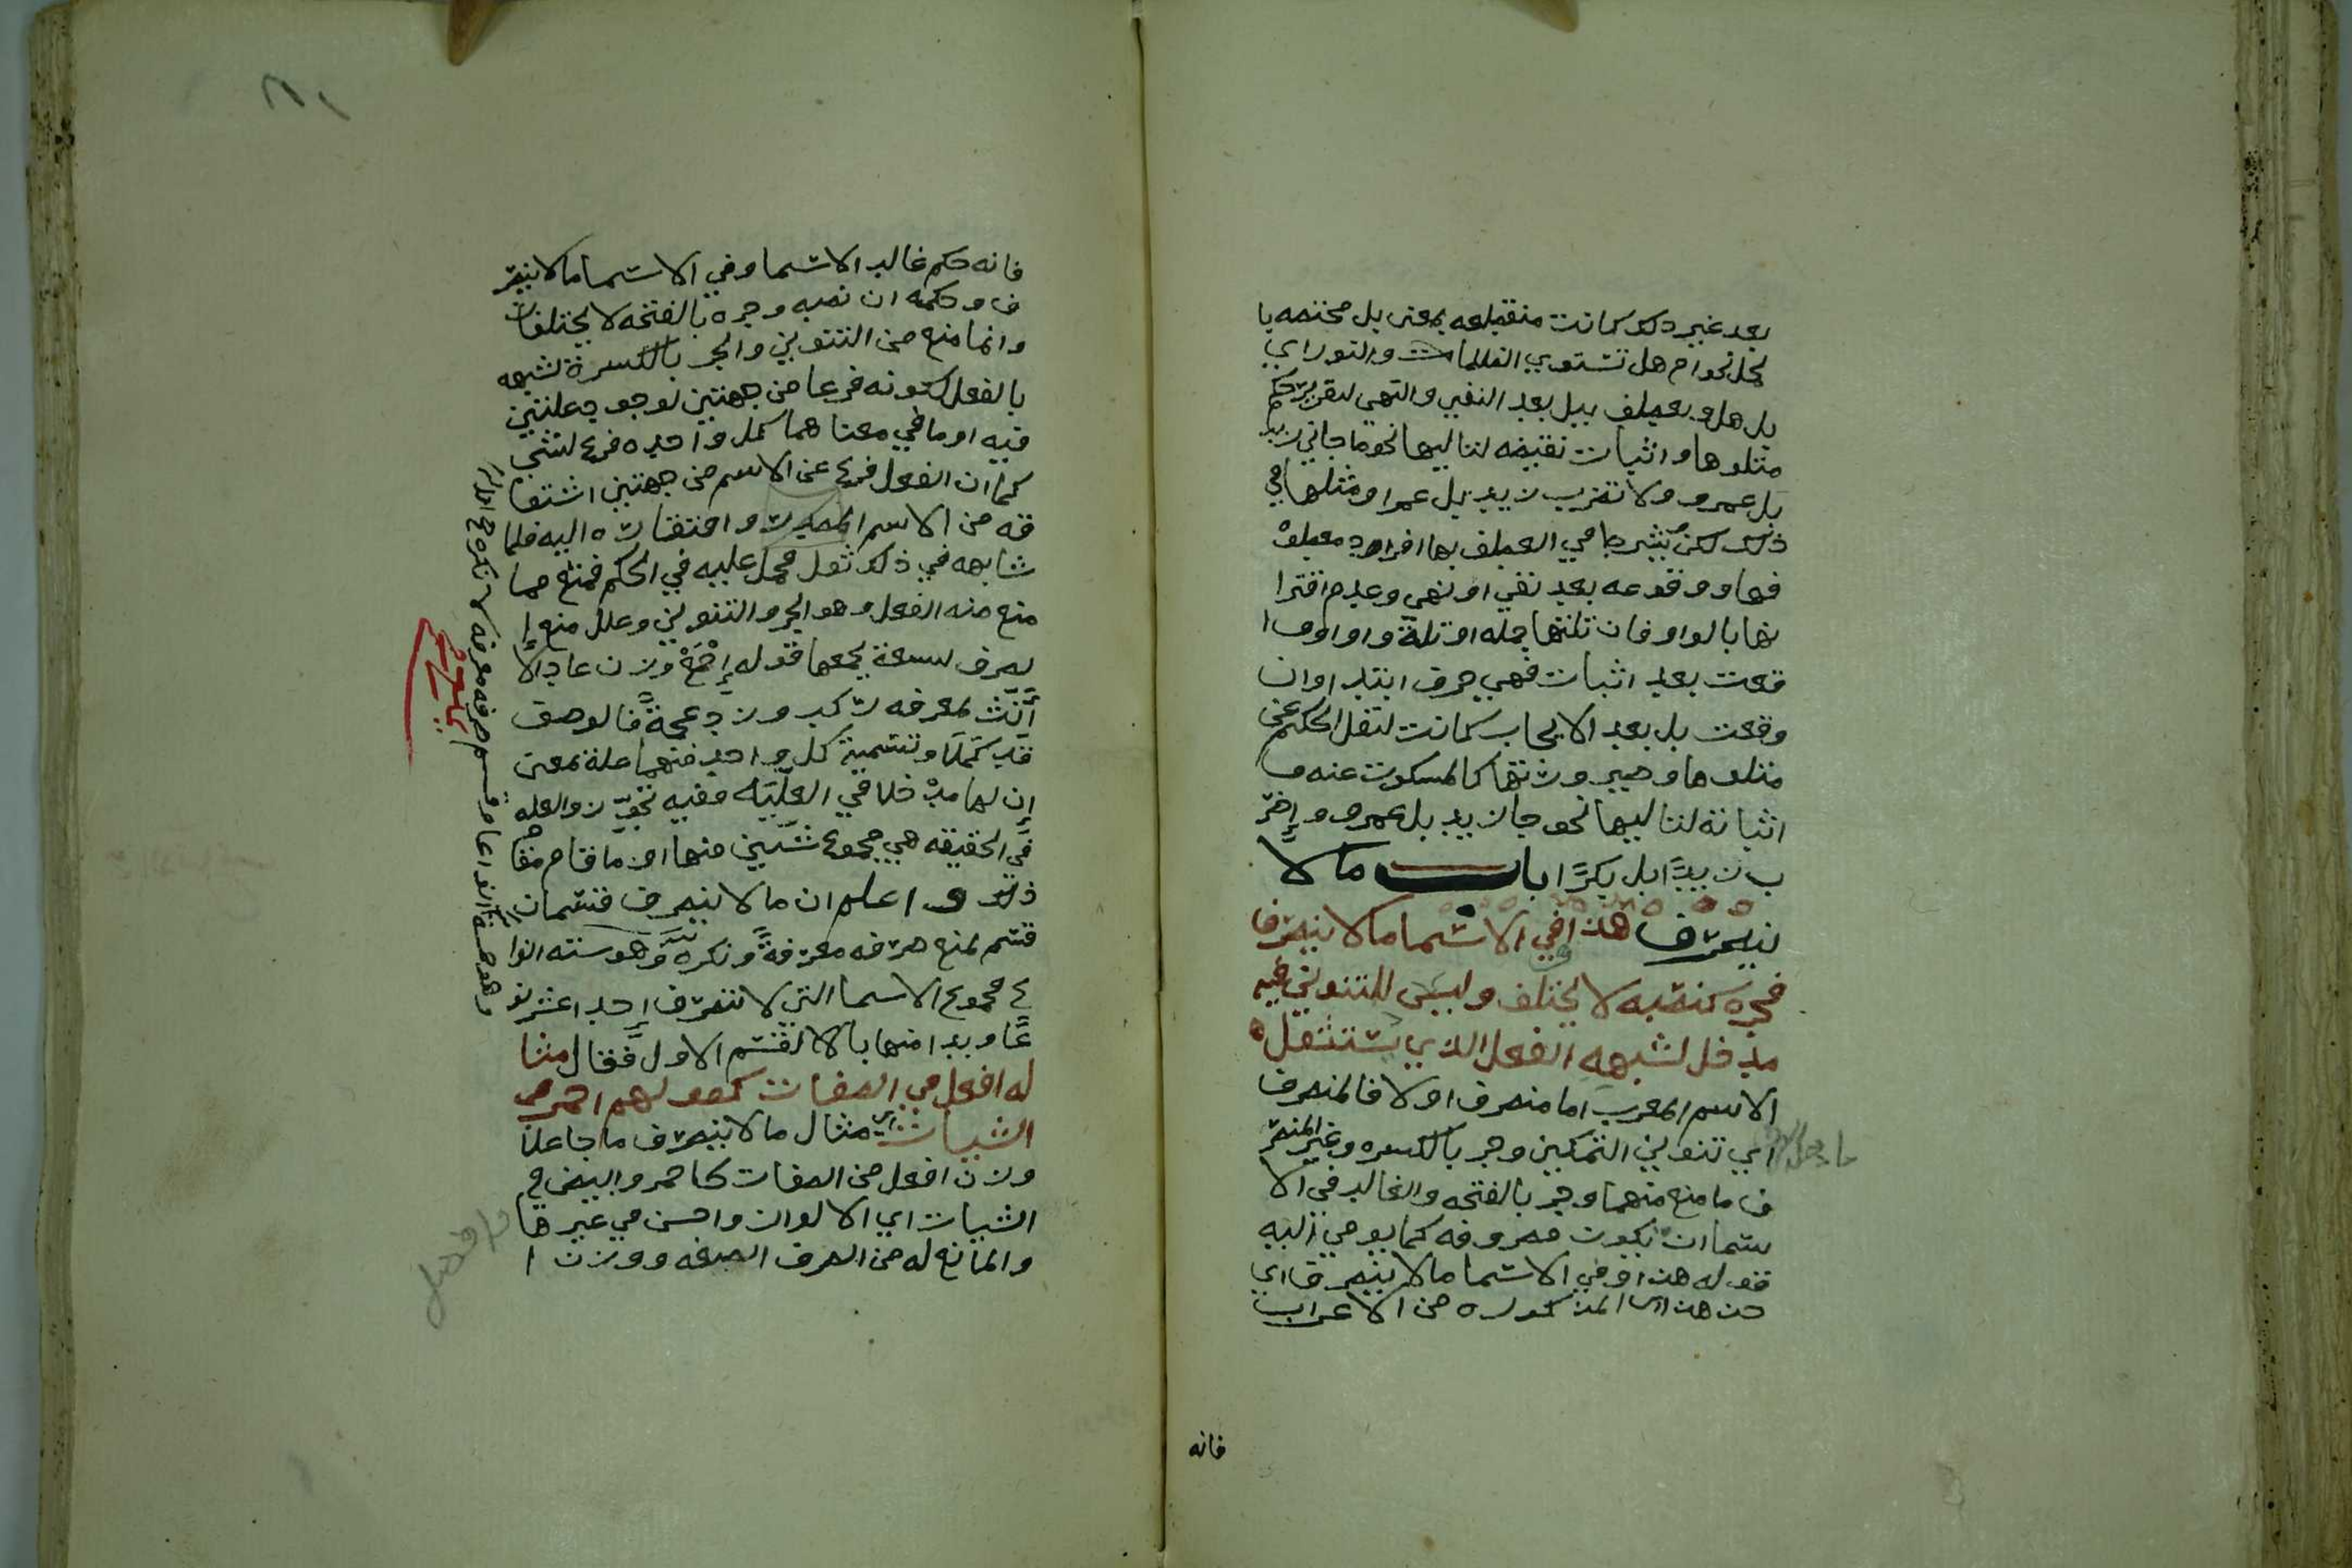 بعد غير ذلك كانت منقطعه بمعنى بل مختصه با
لجمل نحو ام هل تستوي الظلمات والنور اي
بل هل و يعطف ببل بعد النفي والنهي لتقرير حكم
متلوها واثبات نقيضه لتاليها نحو ما جاني زيد
بل عمرو ولا تضرب زيد بل عمرا ومثلها في
ذلك لكن ويشرط في العطف بها افراد معطو
فها ووقوعه بعد نفي او نهي وعدم اقترا
نها بالواو فان تلتها جمله او تلة واو او و ا
قعت بعد اثبات فهي حرف ابتداء وان
وقعت بل بعد الايجاب كانت لنقل الحكم عن
متلوها وصيرورتها كالمسكوت عنه و
اثباته لتاليها نحو جا زيد بل عمرو واضر
ب زيدًا بل بكرًا باب ما لا
ينصرف هذا وفي الاسما ما لا ينصرف
فجره كنصبه لا يختلف وليس للتنوين فيه
مدخل لشبهه الفعل الذي يستثقل
الاسم المعرب اما منصرف اولا فالمنصرف
اي تنوين التمكين وجر بالكسره وغير المنصر
ف ما منع منهما وجر بالفتحه والغالب في الا
سما ان تكون مصروفه كما يومي اليه
قوله هذا وفي الاسما ما لا ينصرف اي
خذ هذا المذكوره من الاعراب
فانه
فانه حكم غالب الاسما وفي الاسما ما لا ينصر
ف وحكمه ان نصبه وجره بالفتحه لا يختلفان
وانما منع من التنوين والجر بالكسرة لشبهه
بالفعل لكونه فرعا من جهتين لوجود علتين
فيه او ما في معناهما كل واحده فرع لشي
كما ان الفعل فرع عن الاسم من جهتين اشتقا
قه من الاسم المصدر وافتقاره اليه فلما
شابهه في ذلك ثقل فحمل عليه في الحكم فمنع مما
منع منه الفعل وهو الجر والتنوين وعلل منع ا
لصرف تسعة يجمعها قوله اجمع وزن عادلا
أنّث بمعرفه ركب وزد عجمةً فالوصف
قد كملا وتسمية كل واحد منهما علة بمعنى
ان لها مدخلا في العلّيّه وفيه تجوّز والعله
في الحقيقه هي مجموع شيين منها او ما قام مقا
ذلك واعلم ان ما لا ينصرف قسمان
قسم يمنع صرفه معرفةً ونكرةً وهو سته انوا
ع مجموع الاسما التي لا تنصرف احد اعشر نو
عًا وبدا منها بالالقسم الاول فقال مثا
له افعل في الصفات كقولهم احمر في
الشيات اي مثال ما لا ينصرف ما جا علا
وزن افعل من الصفات كاحمر وابيض في
الشيات اي الالوان واحسن في غيرها
والمانع له من الصرف الصفه ووزن ا
وهو خمسة انواعا وقسم صرفه معرفه لا نكره